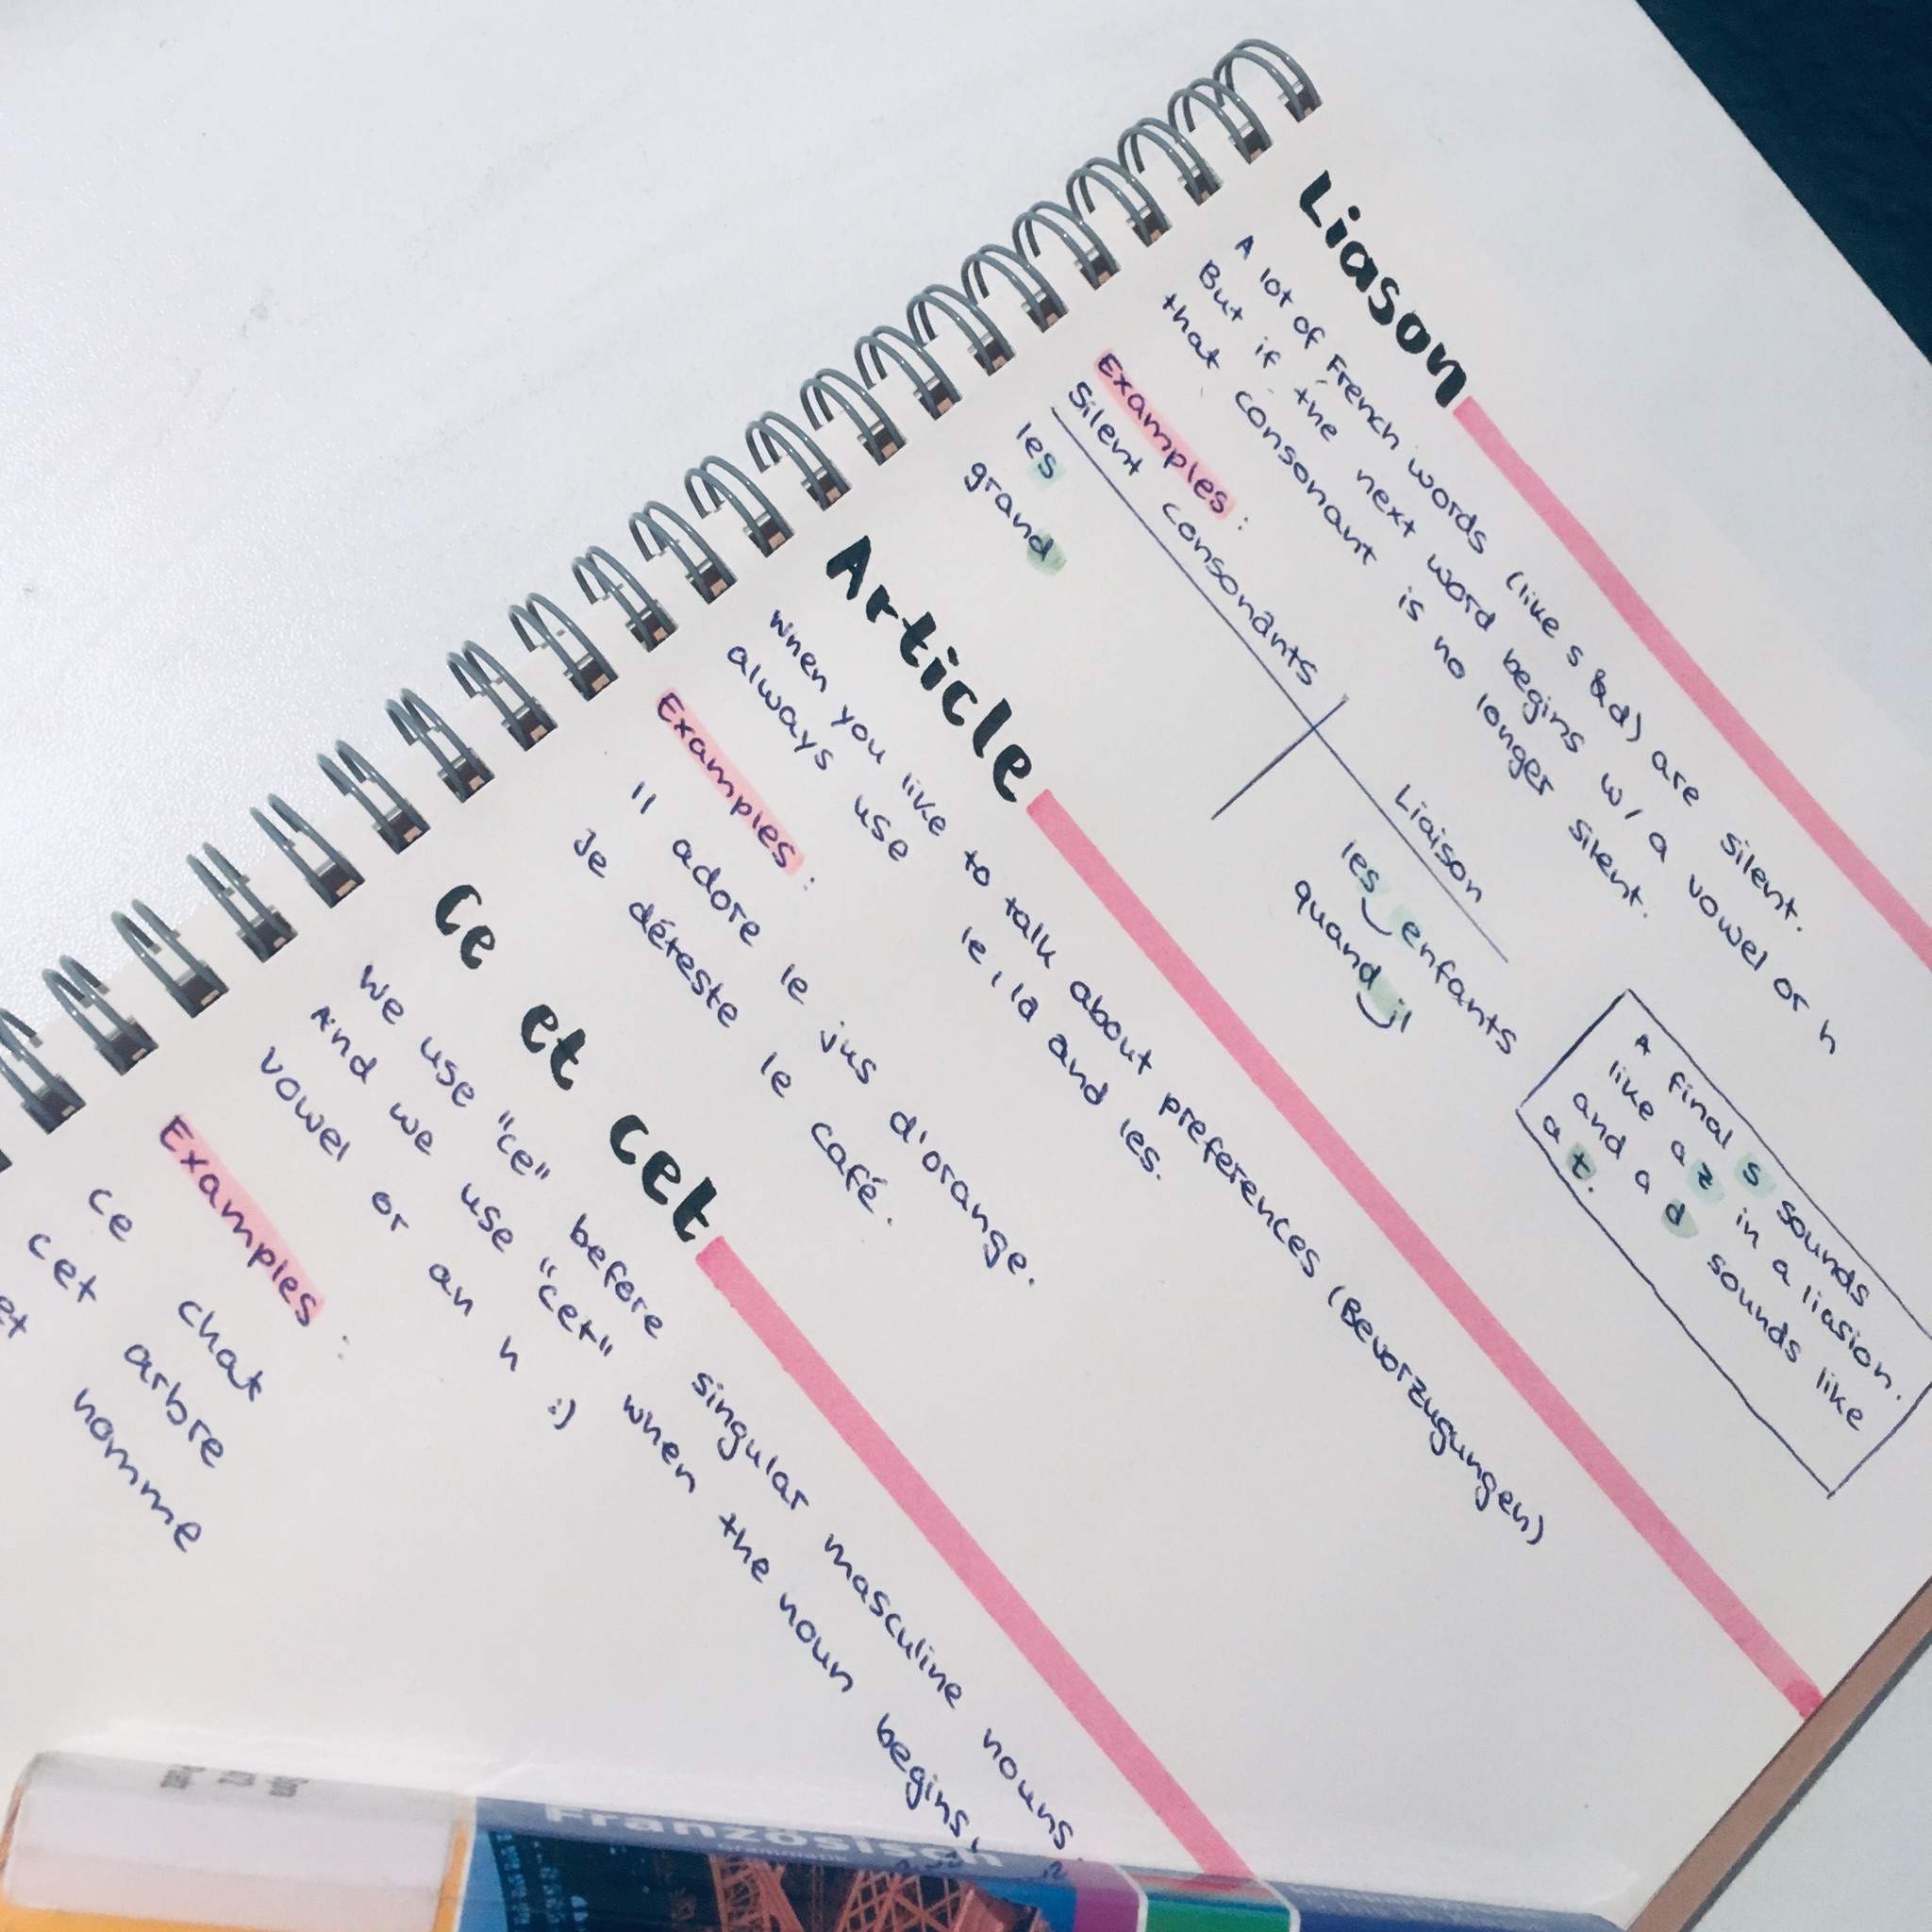 Liason
A lot of French words (like s & d) are silent.
But if the next word begins w/ a vowel or h
that consonant is no longer silent.
Examples:
Silent consonants Liaison
les les enfants
grand quand il
A final s sounds
like a z in a liasion.
and a d sounds like
a t.
Article
When you like to talk about preferences (Bevorzugungen)
always use le, la and les.
Examples:
Il adore le jus d'orange.
Je déteste le café.
Ce et cet
We use "ce" before singular masculine nouns.
And we use "cet" when the noun begins
vowel or an h :)
Examples:
ce chat
cet arbre
et homme
Französisch